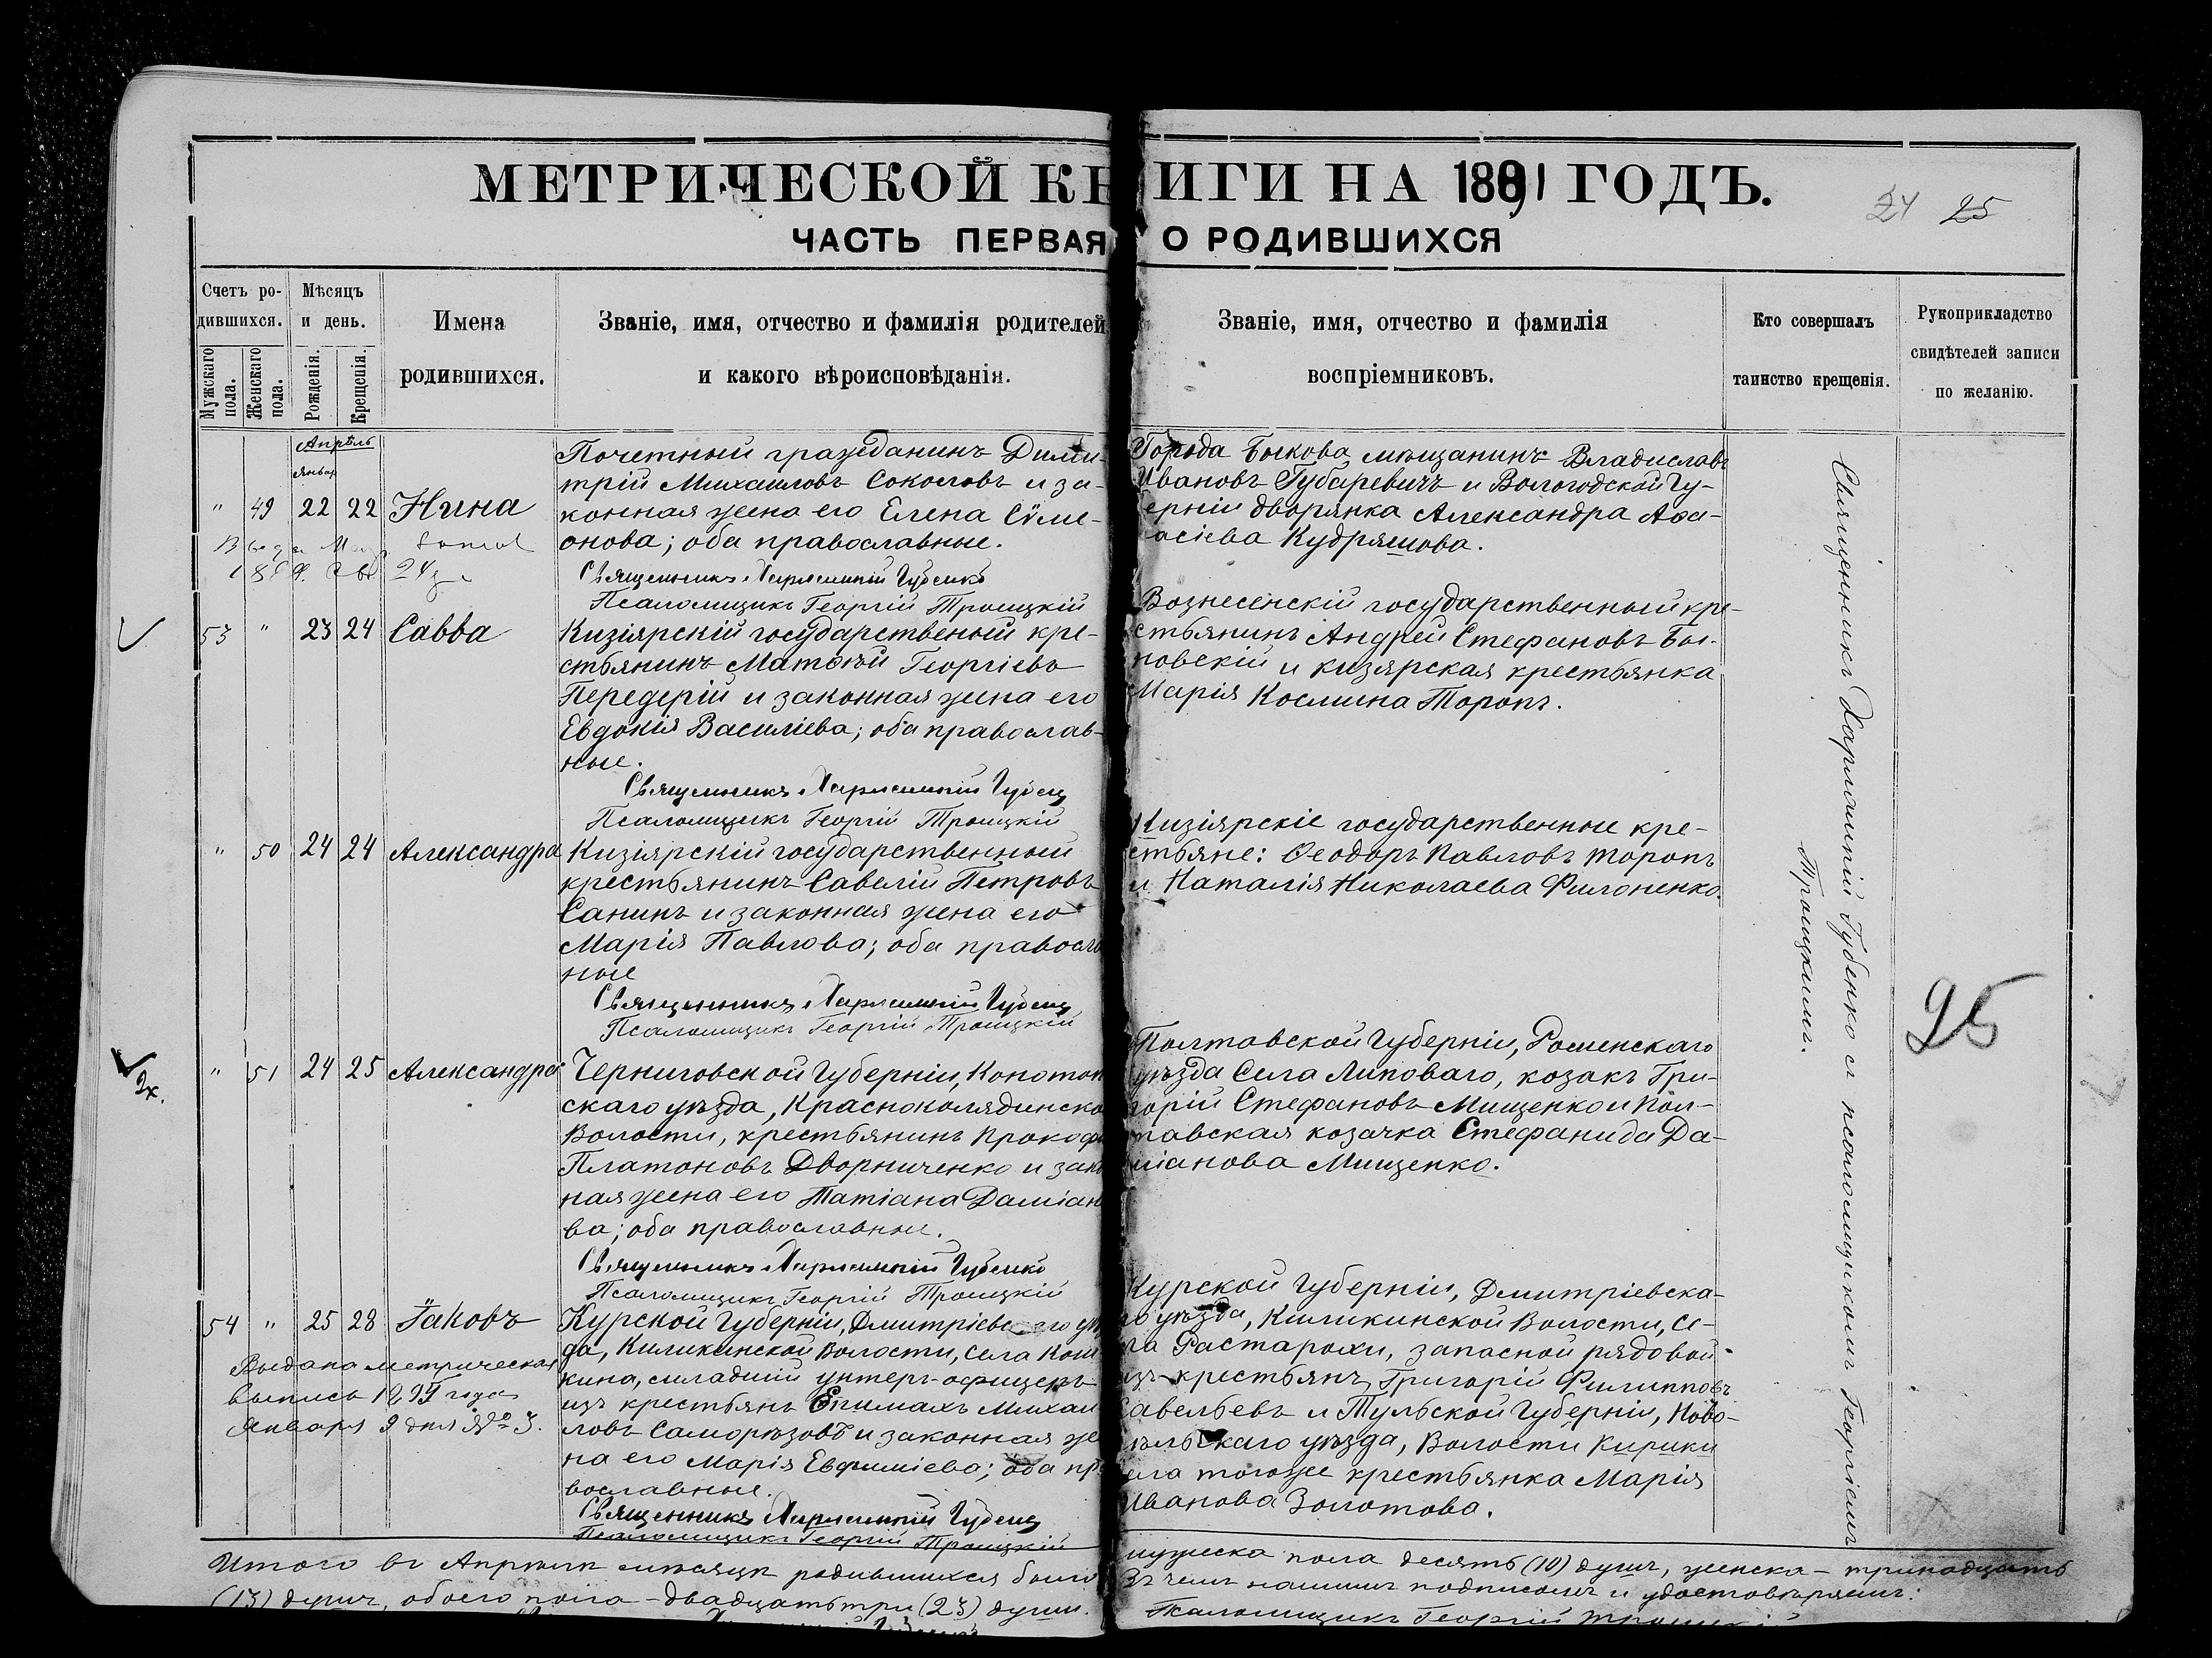 МЕТРИЧЕСКОЙ КНИГИ НА 1891 ГОДЪ.
24 25
ЧАСТЬ ПЕРВАЯ О РОДИВШИХСЯ
Счетъ ро-
дившихся.
Мужскаго пола.
Женскаго пола.
Мѣсяцъ
и день.
Рожденія.
Крещенія.
Имена
родившихся.
Званіе, имя, отчество и фамилія родителей
и какого вѣроисповѣданія.
Званіе, имя, отчество и фамилія
воспріемниковъ.
Кто совершалъ
таинство крещенія.
Рукоприкладство
свидѣтелей записи
по желанію.
Апрѣль
Январ
" 49 22 22 Нина
Почетный гражданинъ Дими-
трій Михаиловъ Соколовъ и за-
конная жена его Елена Сѵме-
онова; оба православные.
Священникъ Харлампій Губенко
Псаломщикъ Георгій Троицкій
Города Быкова мѣщанинъ Владиславъ
Ивановъ Губаревичъ и Вологодской Гу-
ерніи дворянка Александра Аѳа-
асіева Кудряшова.
53 " 23 24 Савва
Кизіярскій государственый кре-
стьянинъ Матѳей Георгіевъ
Передерій и законная жена его
Евдокія Василіева; оба православ-
ные.
Священникъ Харлампій Губенко
Псаломщикъ Георгій Троицкій
Вознесенскій государственный кре-
стьянинъ Андрей Стефановъ Бы-
ковскій и кизіярская крестьянка
Марія Космина Торопъ.
" 50 24 24 Александра
Кизіярскій государственный
крестьянинъ Савелій Петровъ
Санинъ и законная жена его
Марія Павлова; оба правосл
ные
Священникъ Харлампій Губенко
Псаломщикъ Георгій Троицкій
Кизіярскіе государственные кре-
стьяне: Ѳеодоръ Павловъ Торопъ
и Наталія Николаева Филоненко.
" 51 24 25 Александра
Черниговской Губерніи, Конотоп
скаго уѣзда, Красноколядинско
Волости, крестьянинъ Прокоф
Платоновъ Дворниченко и зак
ная жена его Татіана Даміан
ва; оба православные.
Священникъ Харлампій Губенко
Псаломщикъ Георгій Троицкій
Полтавской Губерніи, Роменскаго
уѣзда Села Липоваго, козакъ Гри-
горій Стефановъ Мищенко и Пол-
тавская козачка Стефанида Да-
міанова Мищенко.
54 " 25 28 Іаковъ
Выдана метрическая
выпись
Января 9 дня № 3.
Курской Губерніи, Дмитріевс го уѣ
да, Киликинской Волости, Села Ком
кина, младшій унтеръ-офицеръ
изъ крестьянъ Епимахъ Михаи
ловъ Саморѣзовъ и законная же
на его Марія Евфиміева; оба пр
вославные.
Священникъ Харлампій Губенко
Псаломщикъ Георгій Троицкій
Курской Губерніи, Дмитріевска-
го уѣзда, Киликинской Волости, Се-
ла Растарохи, запасной рядовой
изъ крестьянъ Григорій Филипповъ
Савельевъ и Тульской Губерніи, Ново-
сильскаго уѣзда, Волости Кирики
ела тогоже крестьянка Марія
Иванова Золотова.
Священникъ Харлампій Губенко и псаломщикомъ Георгіемъ
Троицкимъ.
25
Итого въ Апрѣлѣ мѣсяцѣ родившихся было мужеска пола десять (10) душъ, женска - тринадцать
(13) душъ, обоего пола - двадцать три (23) души. Въ чемъ нашимъ подписомъ и удостовѣряемъ:
Псаломщикъ Георгій Троицкій